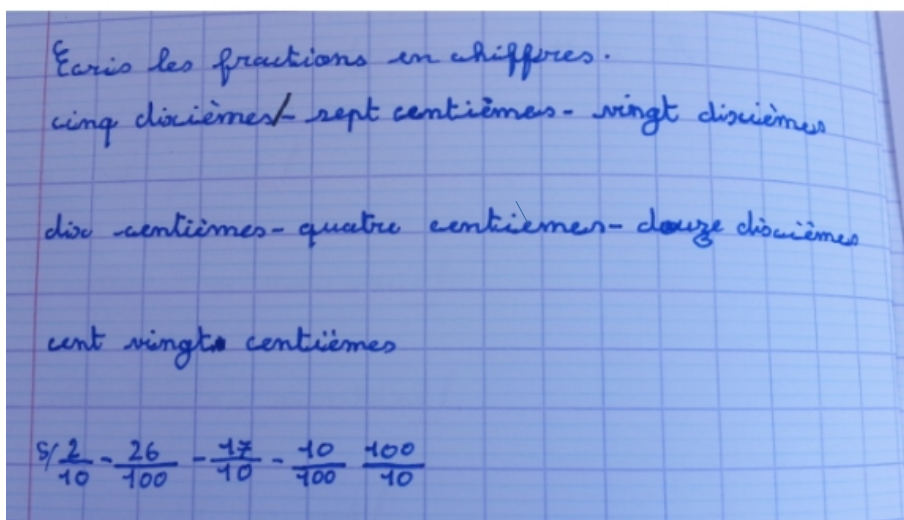 Ecris les fractions en chiffres.
cinq dixièmes/- sept centièmes - vingt dixièmes
dix centièmes - quatre centièmes - douze dixièmes
cent vingt centièmes
5/ 2/10 - 26/100 - 17/10 - 10/100 100/10